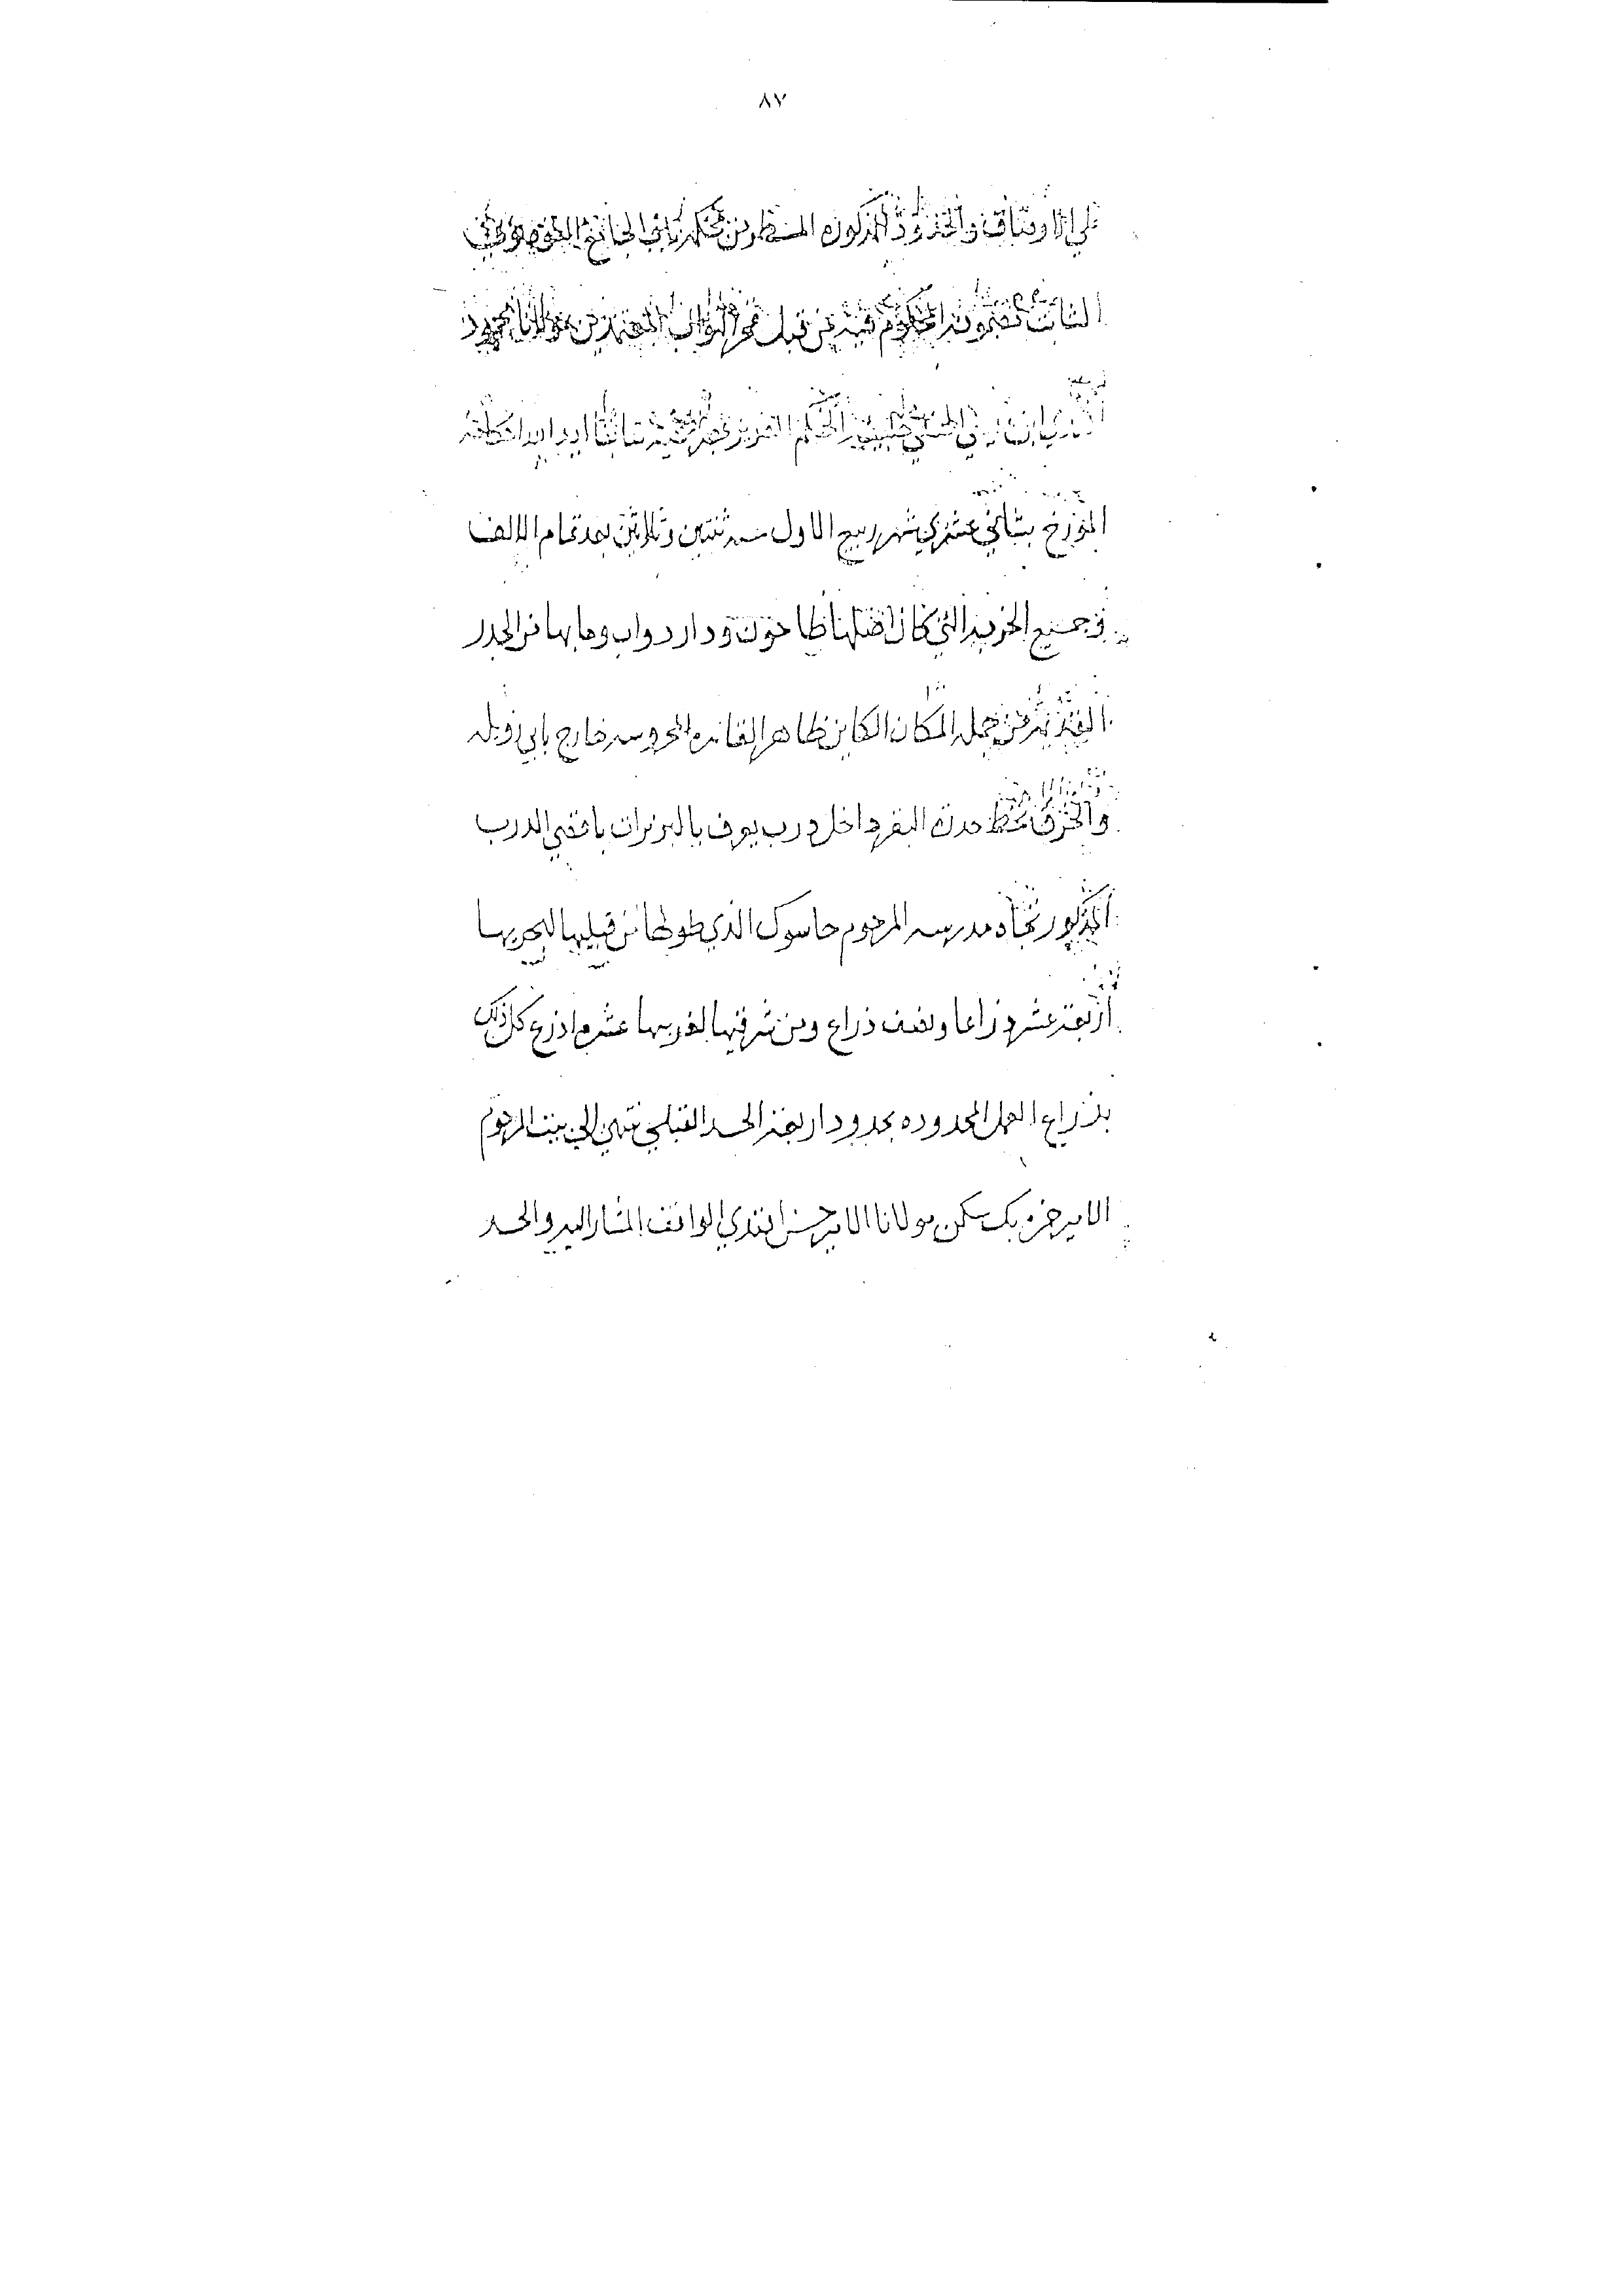 ٨٧
علي الاوقاف والحدود المذكوره المسطر من محكمة باب الجامع القوصوني
الثابت مضمونه المحكوم فيه من قبل فخر النواب المعتمدين مولانا محمود
افندي الحكم العزيز بمصر
المورخ بثاني عشري شهر ربيع الاول سنه ثنتين وثلاثين بعد تمام الالف
في جميع الخربه التي كان اصلها طاحون ودار دواب وما بها من الجدر
القديمه من جمله المكان الكاين ظاهر القاهره المحروسه خارج بابي زويله
والخرق بخط حدرة البقر داخل درب يعرف بالبزبزات باقصي الدرب
المذكور تجاه مدرسه المرحوم جاسوك الذي طولها من قبليها لبحريها
اربعة عشر ذراعا ونصف ذراع ومن شرقيها لغربيها عشرة اذرع كل ذلك
بذراع العمل المحدوده بحدود اربعة الحد القبلي ينتهي الي بيت المرحوم
الامير خزبك سكن مولانا الامير حسن افندي الواقف المشار اليه والحد